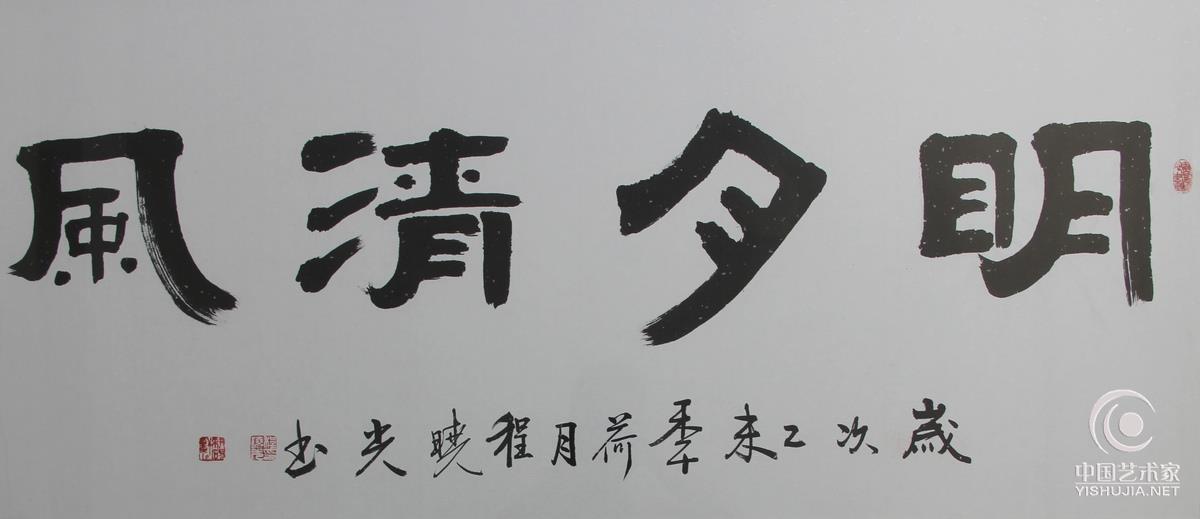 明夕清風
歲次乙未秊荷月程曉光书
中国艺术家
YISHUJIA.NET